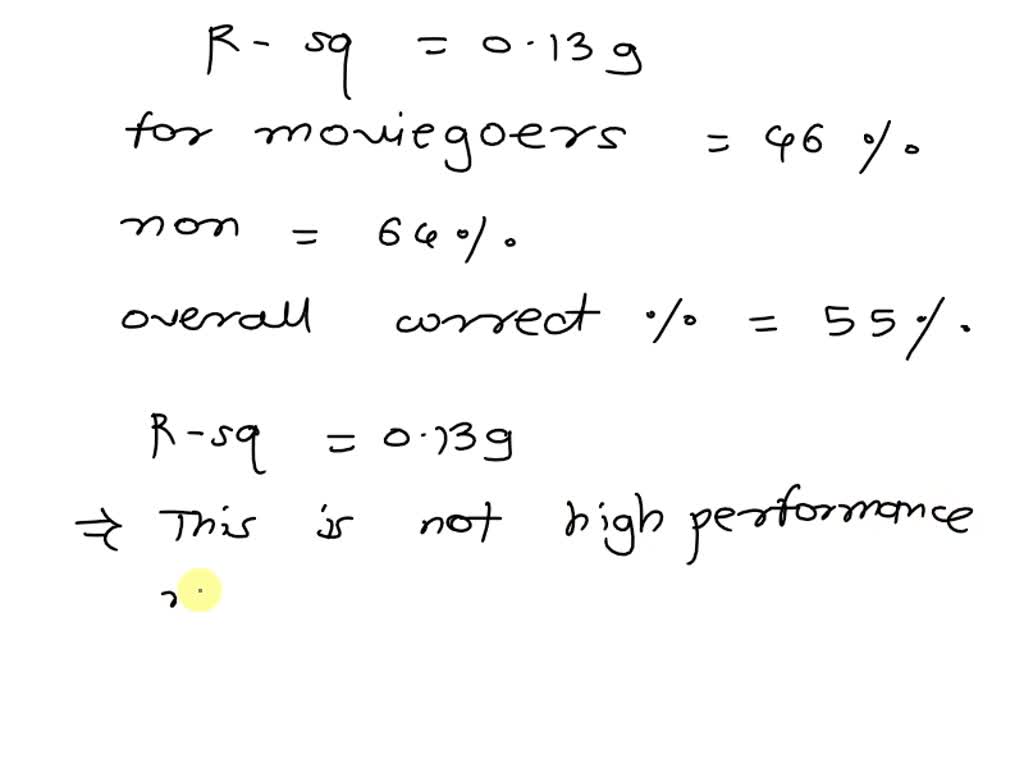 R-sq = 0.139
for moviegoers = 46 %.
non = 64%.
overall correct % = 55%.
R-sq = 0.139
⇒ This is not high performance